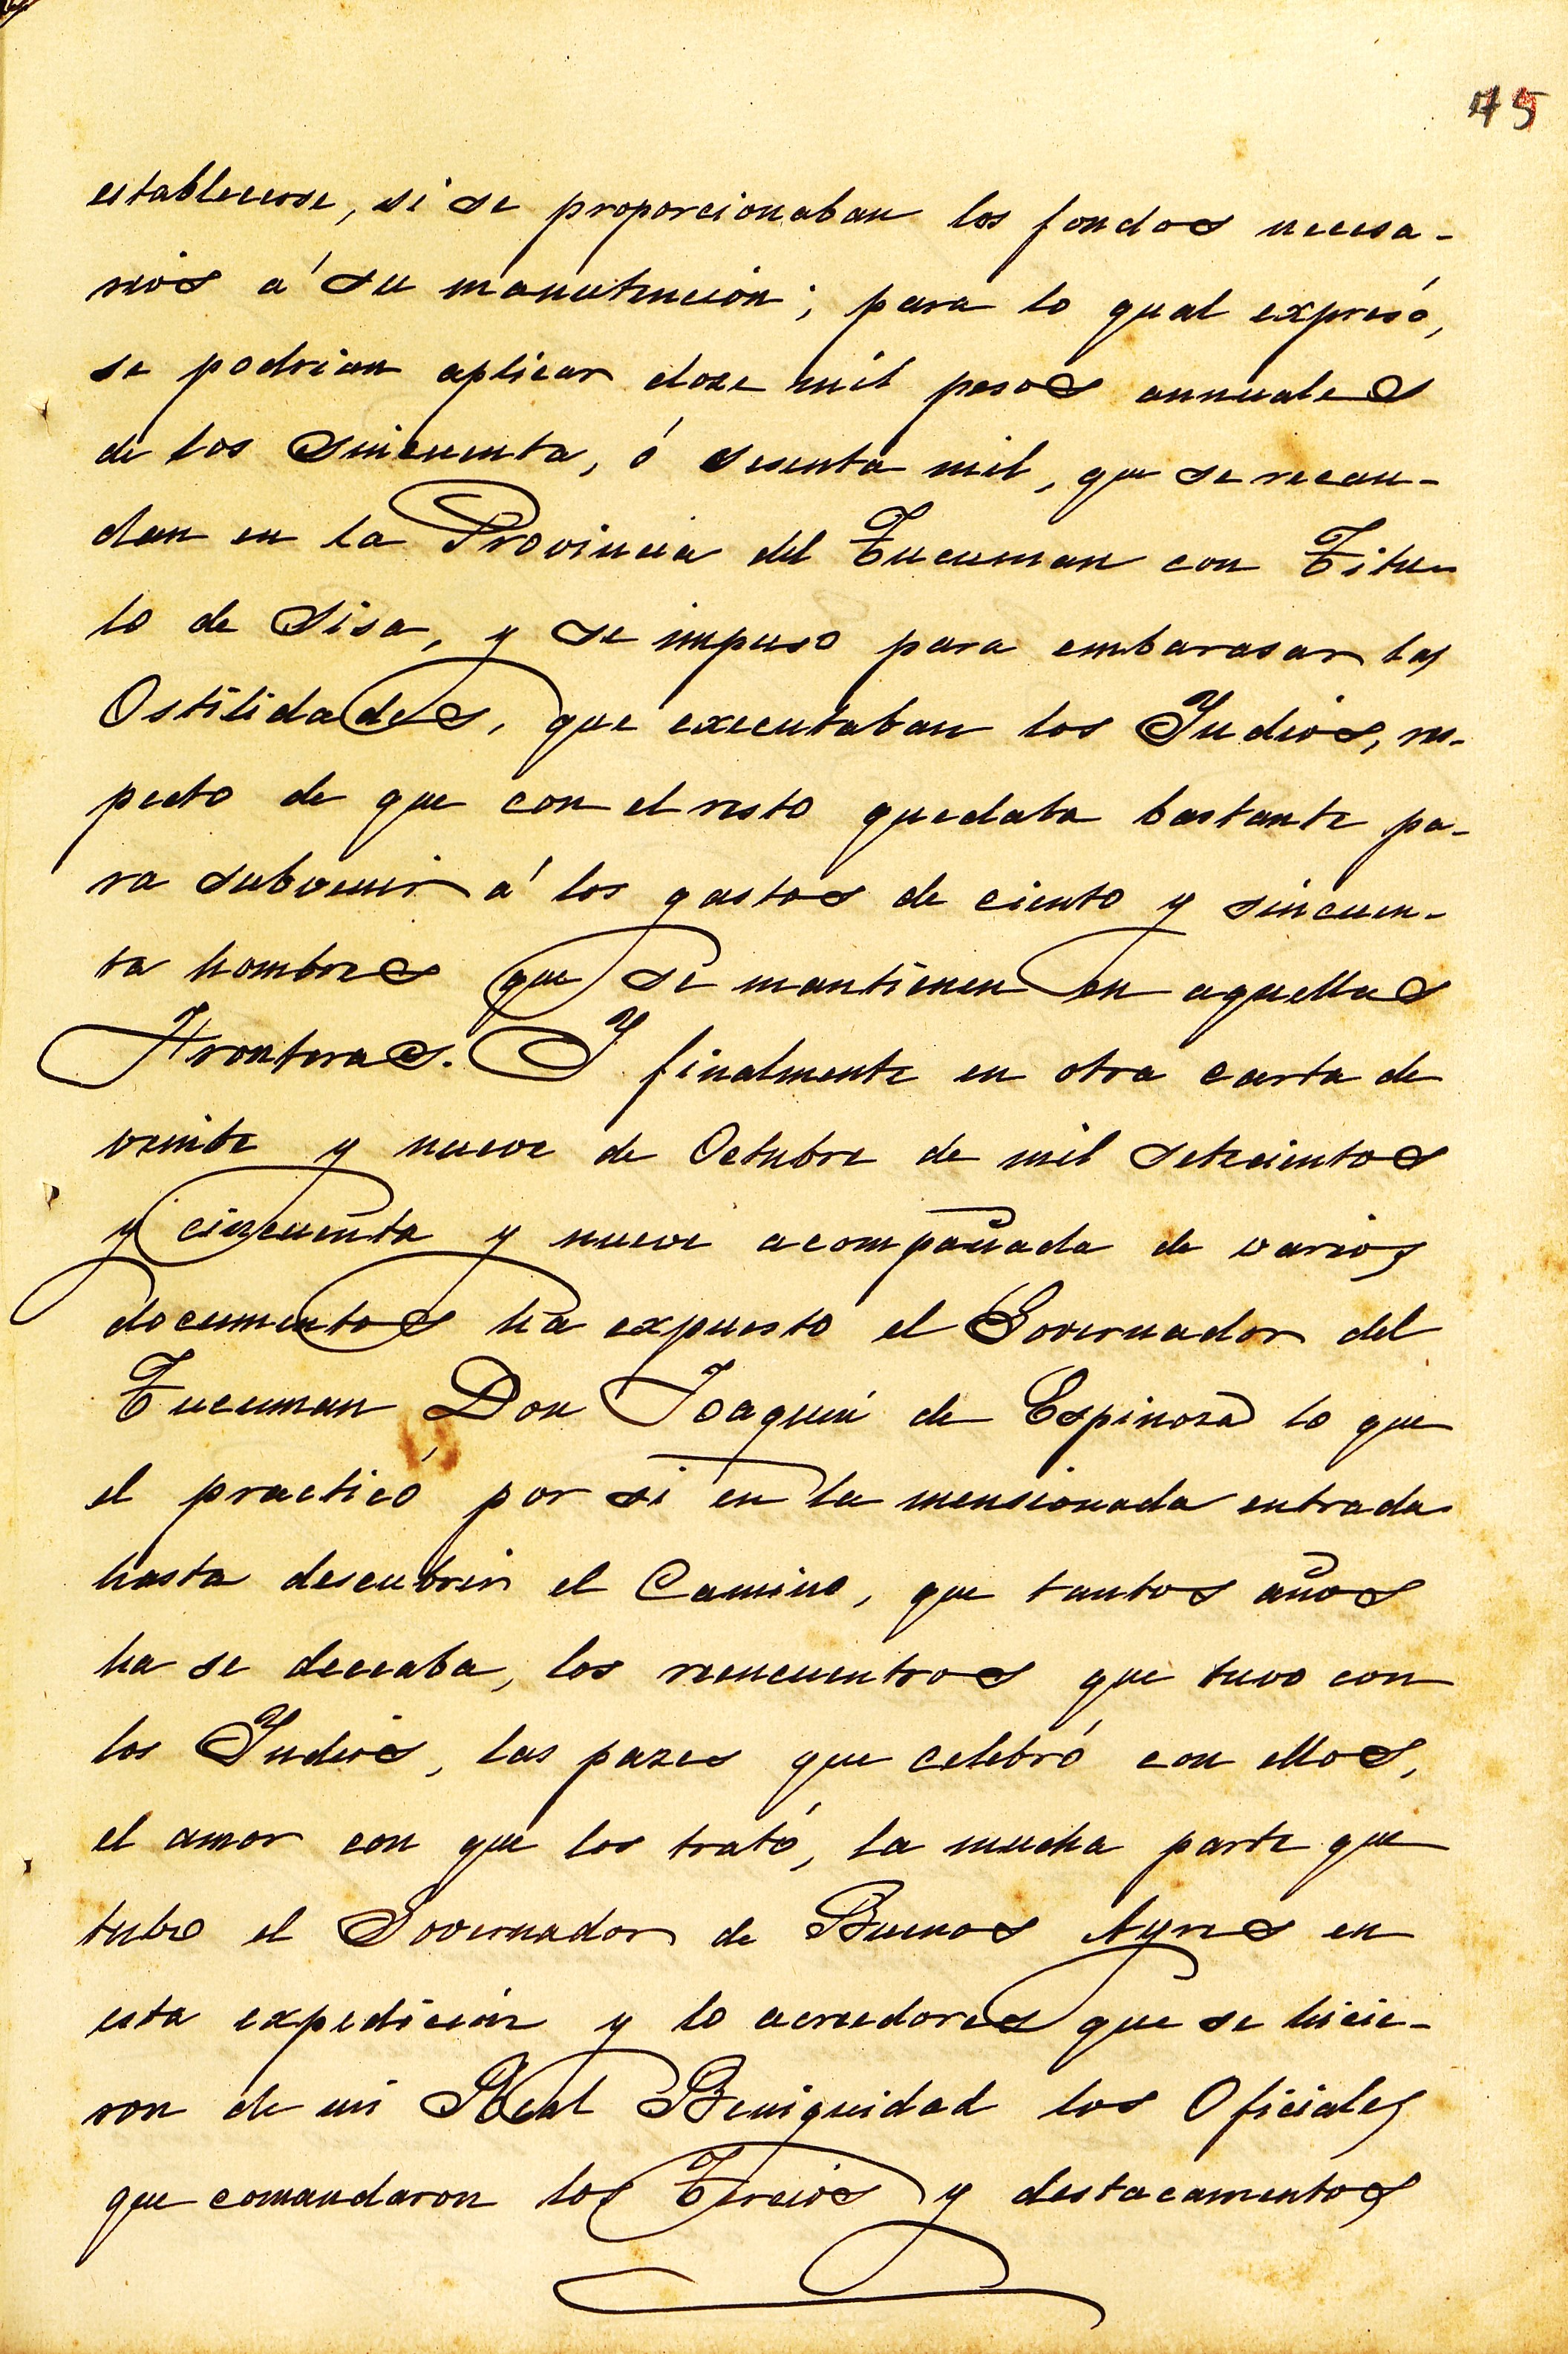 75
establecerse, si se proporcionaban los fondos necesa-
rios á su manutencion; para lo qual expresó,
se podrian aplicar doze mil pesos annuales
de los Sincuenta, ó sesenta mil, que se recau-
dan en la Provincia del Tucuman con Titu-
lo de Sisa, y se impuso para embarasar las
Ostilidades, que executaban los Yndios, res-
pecto de que con el resto quedaba bastante pa-
ra subvenir á los gastos de ciento y sincuen-
ta hombres que se mantienen en aquellas
Fronteras. Y finalmente en otra carta de
veinte y nueve de Octubre de mil setecientos
y cincuenta y nueve acompañada de varios
documentos ha expuesto el Governador del
Tucuman Don Joaquin de Espinosa lo que
el practicó por si en la mensionada entrada
hasta descubrir el Camino, que tantos años
ha se deceaba, los reencuentros que tuvo con
los Yndios, las pazes que celebró con ellos,
el amor con que los trató, la mucha parte que
tubo el Governador de Buenos Ayres en
esta expedición y lo acreedores que se hicie-
ron de mi Real Benignidad los Oficiales
que comandaron los Tercios y destacamentos